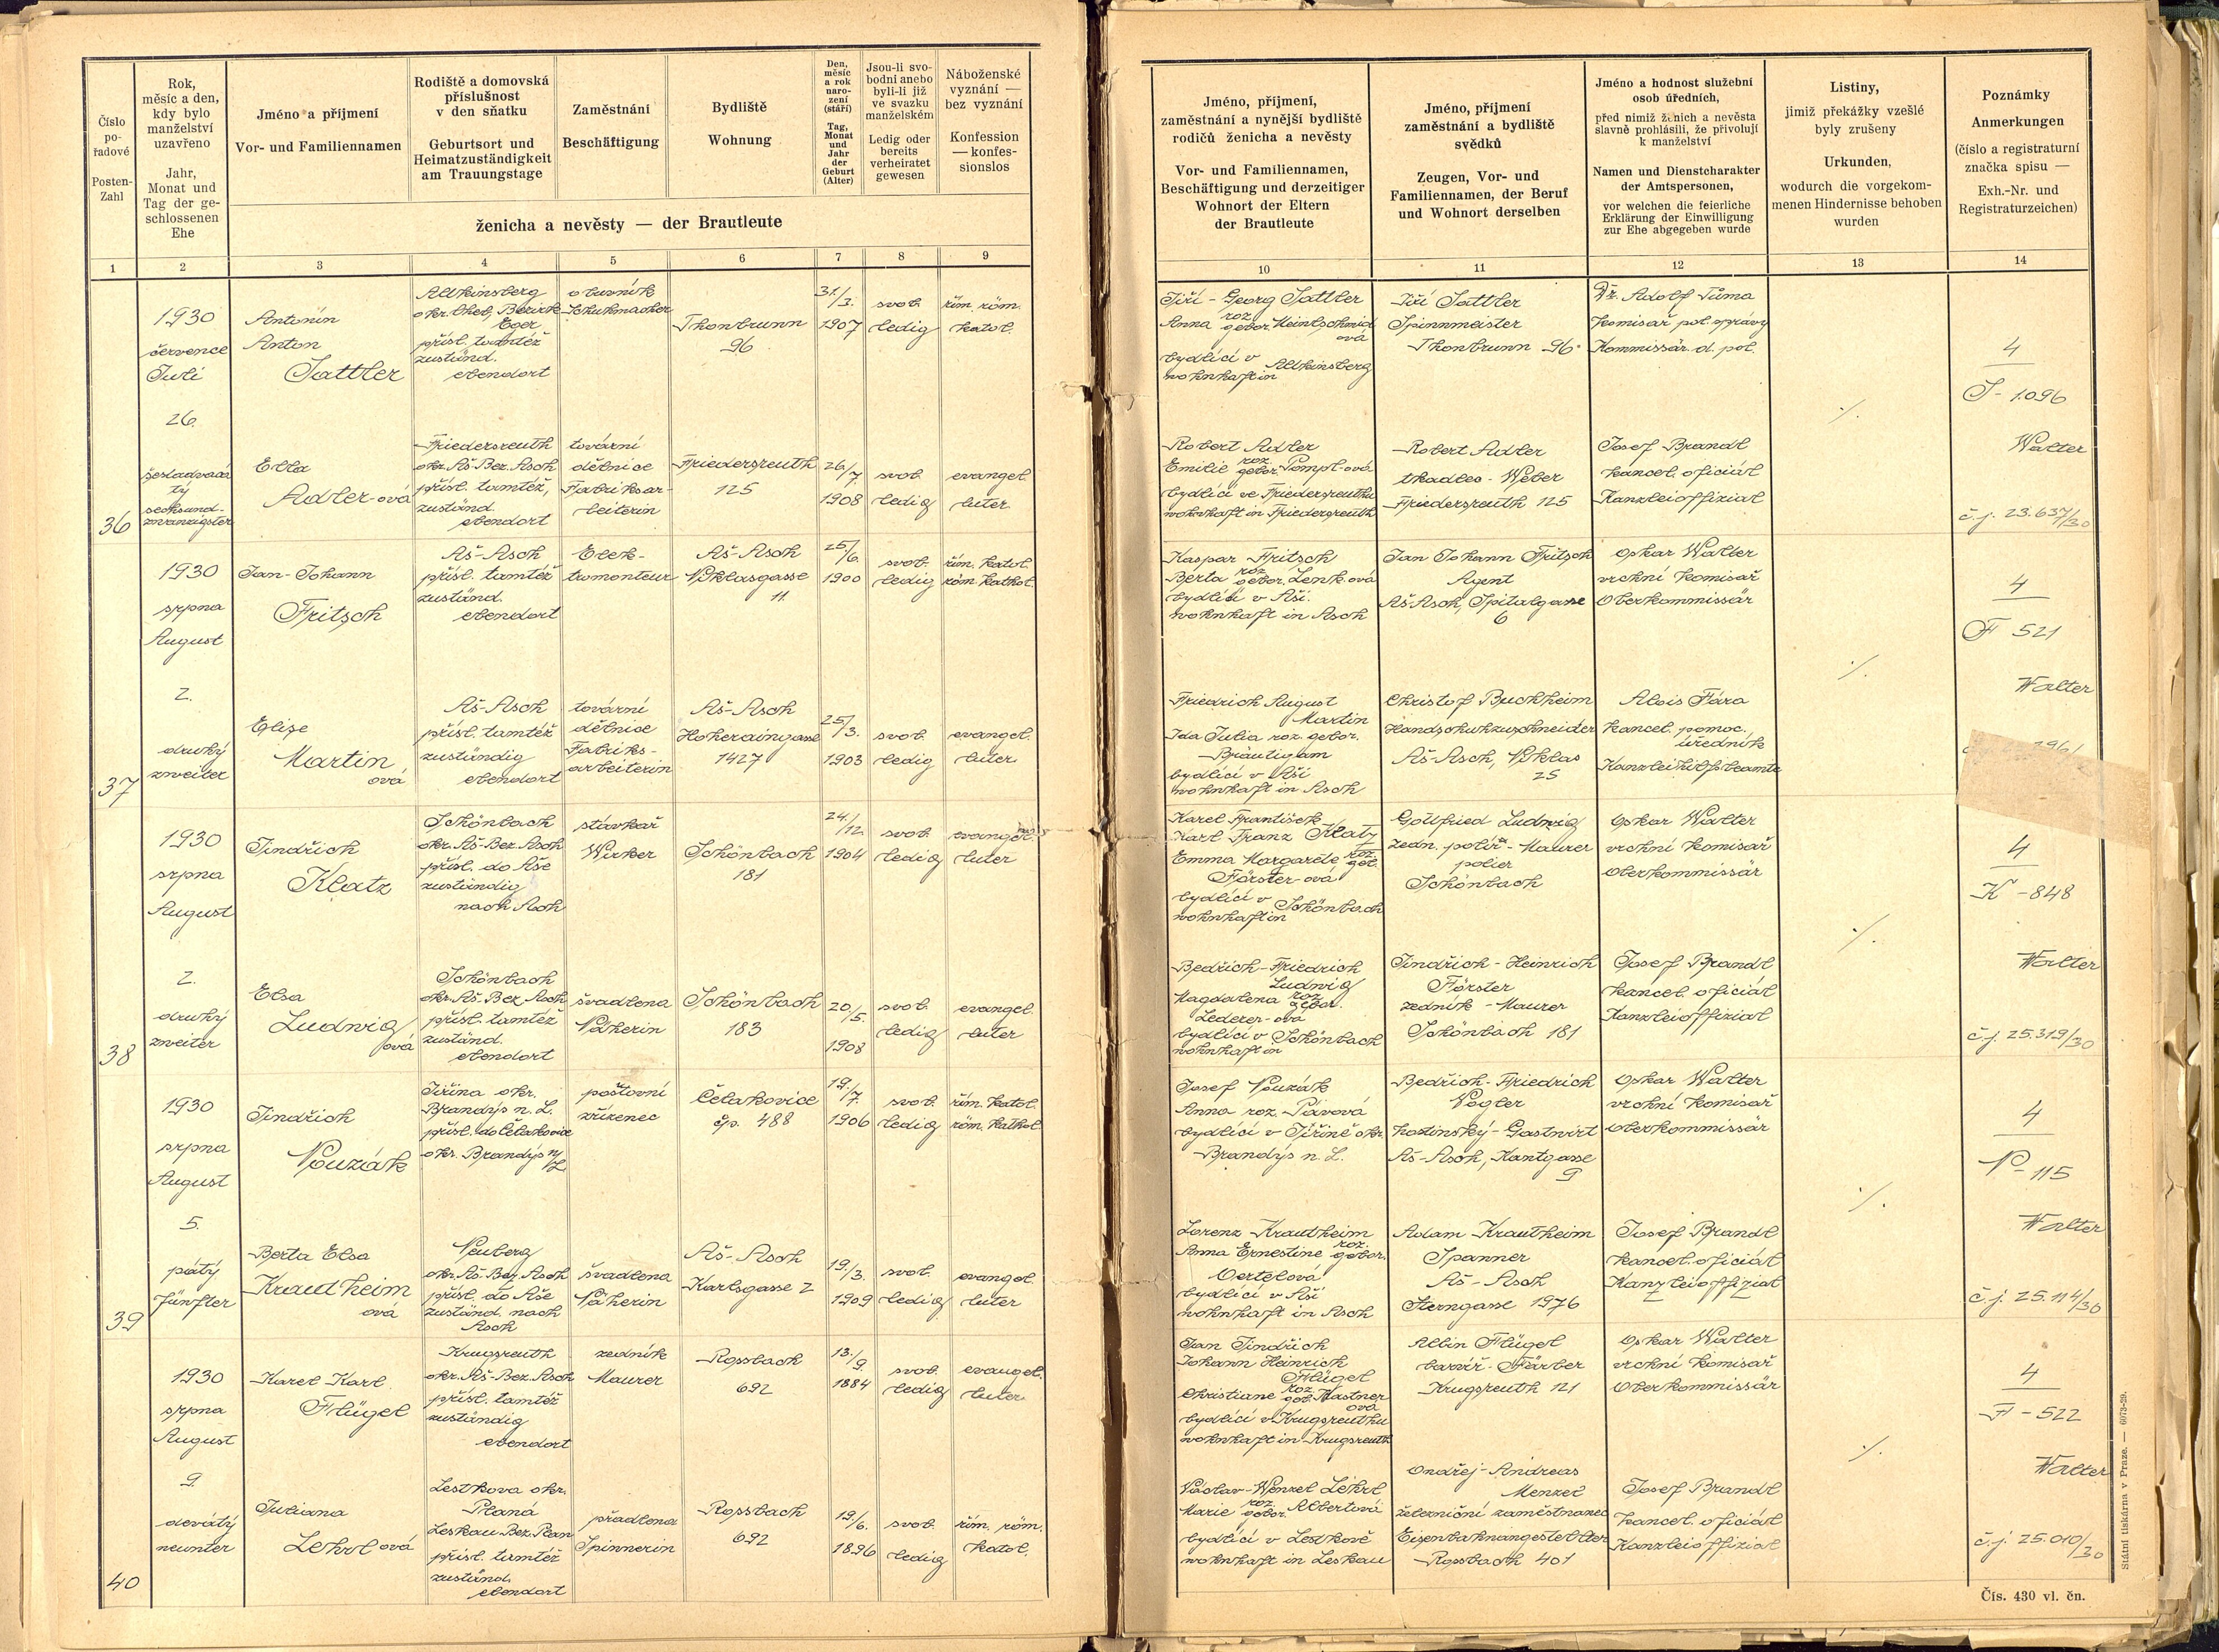 Číslo
po-
řadové
Posten-
Zahl
Rok,
měsíc a den,
kdy bylo
manželství
uzavřeno
Jahr,
Monat und
Tag der ge-
schlossenen
Ehe
Jméno a příjmení
Vor- und Familiennamen
Rodiště a domovská
příslušnost
v den sňatku
Geburtsort und
Heimatzuständigkeit
am Trauungstage
Zaměstnání
Beschäftigung
Bydliště
Wohnung
Den,
měsíc
a rok
naro-
zení
(stáří)
Tag,
Monat
und
Jahr
der
Geburt
(Alter)
Jsou-li svo-
bodni anebo
byli-li již
ve svazku
manželském
Ledig oder
bereits
verheiratet
gewesen
Náboženské
vyznání —
bez vyznání
Konfession
— konfes-
sionslos
ženicha a nevěsty — der Brautleute
1 2 3 4 5 6 7 8 9
1930
července
Juli
26.
šestadvacá
tý
sechsund-
zwanzigster
36
Antonín
Anton
Sattler
Altkinsberg
okr. Cheb, Bezirk
Eger
přísl. tamtéž
zuständ.
ebendort
obuvník
Schuhmacher
Thonbrunn
96
31./3.
1907
svob.
ledig
řím. röm.
katol.
Ella
Adler-ová
Friedersreuth
okr. Aš-Bez. Asch
přísl. tamtéž,
zuständ.
ebendort
tovární
dělnice
Fabriksar-
beiterin
Friedersreuth
125
26/7.
1908
svob.
ledig
evangel.
luter.
1930
srpna
August
2.
druhý
zweiter
37
Jan-Johann
Fritsch
Aš-Asch
přísl. tamtéž
zuständ.
ebendort
Elek-
tromonteur
Aš-Asch
Niklasgasse
11
25/6.
1900
svob.
ledig
řím. katol.
röm. kathol.
Elise
Martin
ová
Aš-Asch
přísl. tamtéž
zuständig
ebendort
tovární
dělnice
Fabriks-
arbeiterin
Aš-Asch
Hoheraingasse
1427
25/3.
1903
svob.
ledig
evangel.
luter.
1930
srpna
August
2.
druhý
zweiter
38
Jindřich
Klatz
Schönbach
okr. Aš-Bez. Asch
přísl. do Aše
zuständig
nach Asch
stávkař
Wirker
Schönbach
181
24./12.
1904
svob.
ledig
evangel.
luter
Elsa
Ludwig
ová
Schönbach
okr. Aš-Bez. Asch
přísl. tamtéž
zuständ.
ebendort
švadlena
Näherin
Schönbach
183
20/5.
1908
svob.
ledig
evangel.
luter
1930
srpna
August
5.
pátý
fünfter
39
Jindřich
Nouzák
Jiřina okr.
Brandýs n. L.
přísl. do Čelakovice
okr. Brandýs n/L
poštovní
zřízenec
Čelakovice
čp. 488
19./7.
1906
svob.
ledig
řím. katol.
röm. kathol.
Berta Elsa
Krautheim
ová
Neuberg
okr. Aš-Bez. Asch
přísl. do Aše
zuständ. nach
Asch
švadlena
Näherin
Aš-Asch
Karlsgasse 2
19./3.
1909
svob.
ledig
evangel.
luter
1930
srpna
August
9.
devátý
neunter
40
Karel-Karl
Flügel
Krugsreuth
okr. Aš-Bez. Asch
přísl. tamtéž
zuständig
ebendort
zedník
Maurer
Rossbach
692
13./9.
1884
svob.
ledig
evangel.
luter.
Juliana
Lehrl ová
Lestkova okr.
Planá
Leskau Bez. Plan
přísl. tamtéž
zuständ.
ebendort
přadlena
Spinnerin
Rossbach
692
19/6.
1896
svob.
ledig
řím. röm.
katol.
Jméno, příjmení,
zaměstnání a nynější bydliště
rodičů ženicha a nevěsty
Vor- und Familiennamen,
Beschäftigung und derzeitiger
Wohnort der Eltern
der Brautleute
Jméno, příjmení
zaměstnání a bydliště
svědků
Zeugen, Vor- und
Familiennamen, der Beruf
und Wohnort derselben
Jméno a hodnost služební
osob úředních,
před nimiž ženich a nevěsta
slavně prohlásili, že přivolují
k manželství
Namen und Dienstcharakter
der Amtspersonen,
vor welchen die feierliche
Erklärung der Einwilligung
zur Ehe abgegeben wurde
Listiny,
jimiž překážky vzešlé
byly zrušeny
Urkunden,
wodurch die vorgekom-
menen Hindernisse behoben
wurden
Poznámky
Anmerkungen
(číslo a registraturní
značka spisu —
Exh.-Nr. und
Registraturzeichen)
10 11 12 13 14
Jiří-Georg Sattler
Anna roz. gebor. Heintschmid
ová
bydlící v
wohnhaft in Altkinsberg
Jiří Sattler
Spinnmeister
Thonbrunn 96
Dr. Adolf Tůma
komisař pol. správy
Kommissär. d. pol.
./.
4
S-1.096
Walter
č.j. 23.637/30
Robert Adler
Emilie roz. gebor. Pompl-ová
bydlící ve Friedersreuthu
wohnhaft in Friedersreuth
Robert Adler
tkadlec-Weber
Friedersreuth 125
Josef Brandl
kancel. oficiál
Kanzleioffizial
Kaspar Fritsch
Berta roz. gebor. Lenk.ová
bydlící v Aši.
wohnhaft in Asch
Jan Johann Fritsch
Agent
Aš-Asch, Spitalgasse
6
Oskar Walter
vrchní komisař
Oberkommissär
./.
4
F 521
Walter
Friedrich August
Martin
Ida Julia roz. gebor.
Bräutigam
bydlící v Aši
wohnhaft in Asch
Christof Buchheim
Handschuhzuschneider
Aš-Asch, Niklas
25
Alois Fára
kancel. pomoc.
úředník
Kanzleihilfsbeamte
Karel František
Karl Franz Klatz
Emma Margarete roz. geb.
Förster-ová
bydlící v
wohnhaft in Schönbach
Gottfried Ludwig
zedn. políř-Maurer
polier
Schönbach
Oskar Walter
vrchní komisař
Oberkommissär
./.
4
K-848
Walter
č.j. 25.319/30
Bedřich-Friedrich
Ludwig
Magdalena roz. gebor.
Lederer-ová
bydlící v Schönbach
wohnhaft in
Jindřich-Heinrich
Förster
zedník-Maurer
Schönbach 181
Josef Brandl
kancel. oficiál
Kanzleioffizial
Josef Nouzák
Anna roz. Pávová
bydlící v Jiřině okr.
Brandýs n. L.
Bedřich-Friedrich
Vogler
hostinský-Gastwirt
Aš-Asch, Kantgasse
9
Oskar Walter
vrchní komisař
Oberkommissär
./.
4
N-115
Walter
č.j. 25.114/30
Lorenz Krautheim
Anna Ernestine roz. gebor.
Oertelová
bydlící v Aši
wohnhaft in Asch
Adam Krautheim
Spanner
Aš-Asch
Sterngasse 1976
Josef Brandl
kancel. oficiál
Kanzleioffizial
Jan Jindřich
Johann Heinrich
Flügel
Christiane roz. geb. Kastner
ová
bydlící v Krugsreuthu
wohnhaft in Krugsreuth
Albin Flügel
barvíř-Färber
Krugsreuth 121
Oskar Walter
vrchní komisař
Oberkommissär
./.
4
F-522
Walter
č.j. 25.010/30
Václav-Wenzel Lehrl
Marie roz. gebor. Albertová
bydlící v Lestkově
wohnhaft in Leskau
Ondřej-Andreas
Menzel
železniční zaměstnanec
Eisenbahnangestellter
Rossbach 401
Josef Brandl
kancel. oficiál
Kanzleioffizial
Státní tiskárna v Praze. — 6073-29.
Čís. 430 vl. čn.